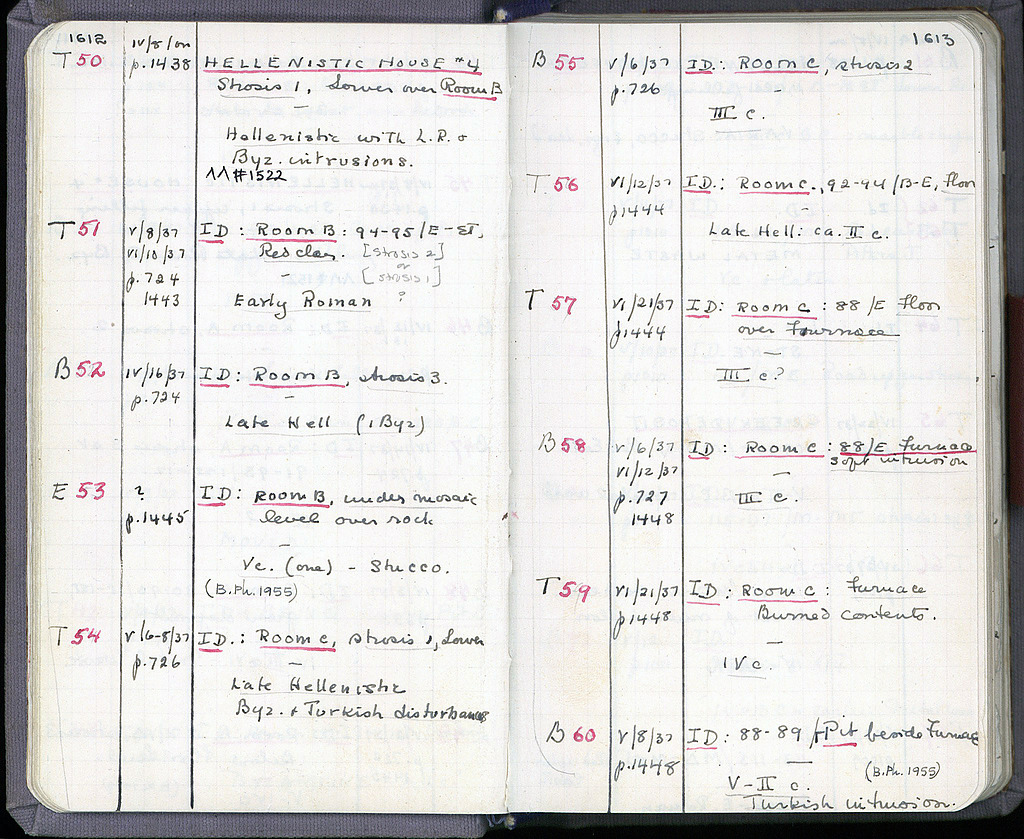 1612
IV/8/37
T 50 p.1438 HELLENISTIC HOUSE #4
Strosis 1, Lower over Room B
—
Hellenistic with L.R. &
Byz. intrusions.
ΛΛ#1522
T 51 V/8/37 ID: Room B: 94-95/E-ΣΤ,
VI/10/37 Red clay. [Strosis 2]
or
p.724 — [Strosis 1]
1443 Early Roman ?
B 52 IV/16/37 ID: Room B, strosis 3.
p.724 —
Late Hell (1 Byz)
E 53 ? ID: Room B, under mosaic
p.1445 level over rock
—
Vc. (one) - Stucco.
(B.Ph.1955)
T 54 V/6-8/37 ID.: Room C, strosis 1, Lower
p.726 —
Late Hellenistic
Byz. + Turkish disturbances
1613
B 55 V/6/37 ID.: Room C, strosis 2
p.726 —
III c.
T 56 VI/12/37 ID.: Room C., 92-94/B-E, floor
p1444 —
Late Hell: ca. II c.
T 57 VI/21/37 ID: Room C: 88/E Floor
p1444 over Furnace
—
III c?
B 58 V/6/37 ID: Room C: 88/E Furnace
VI/12/37 soft intrusion
—
p.727 III c.
1448
T 59 VI/21/37 ID: Room C: Furnace
p1448 Burned contents.
—
IV c.
B 60 V/8/37 ID: 88-89/ Pit beside Furnace
p.1448 —
(B.Ph.1955)
V-II c.
Turkish intrusion.